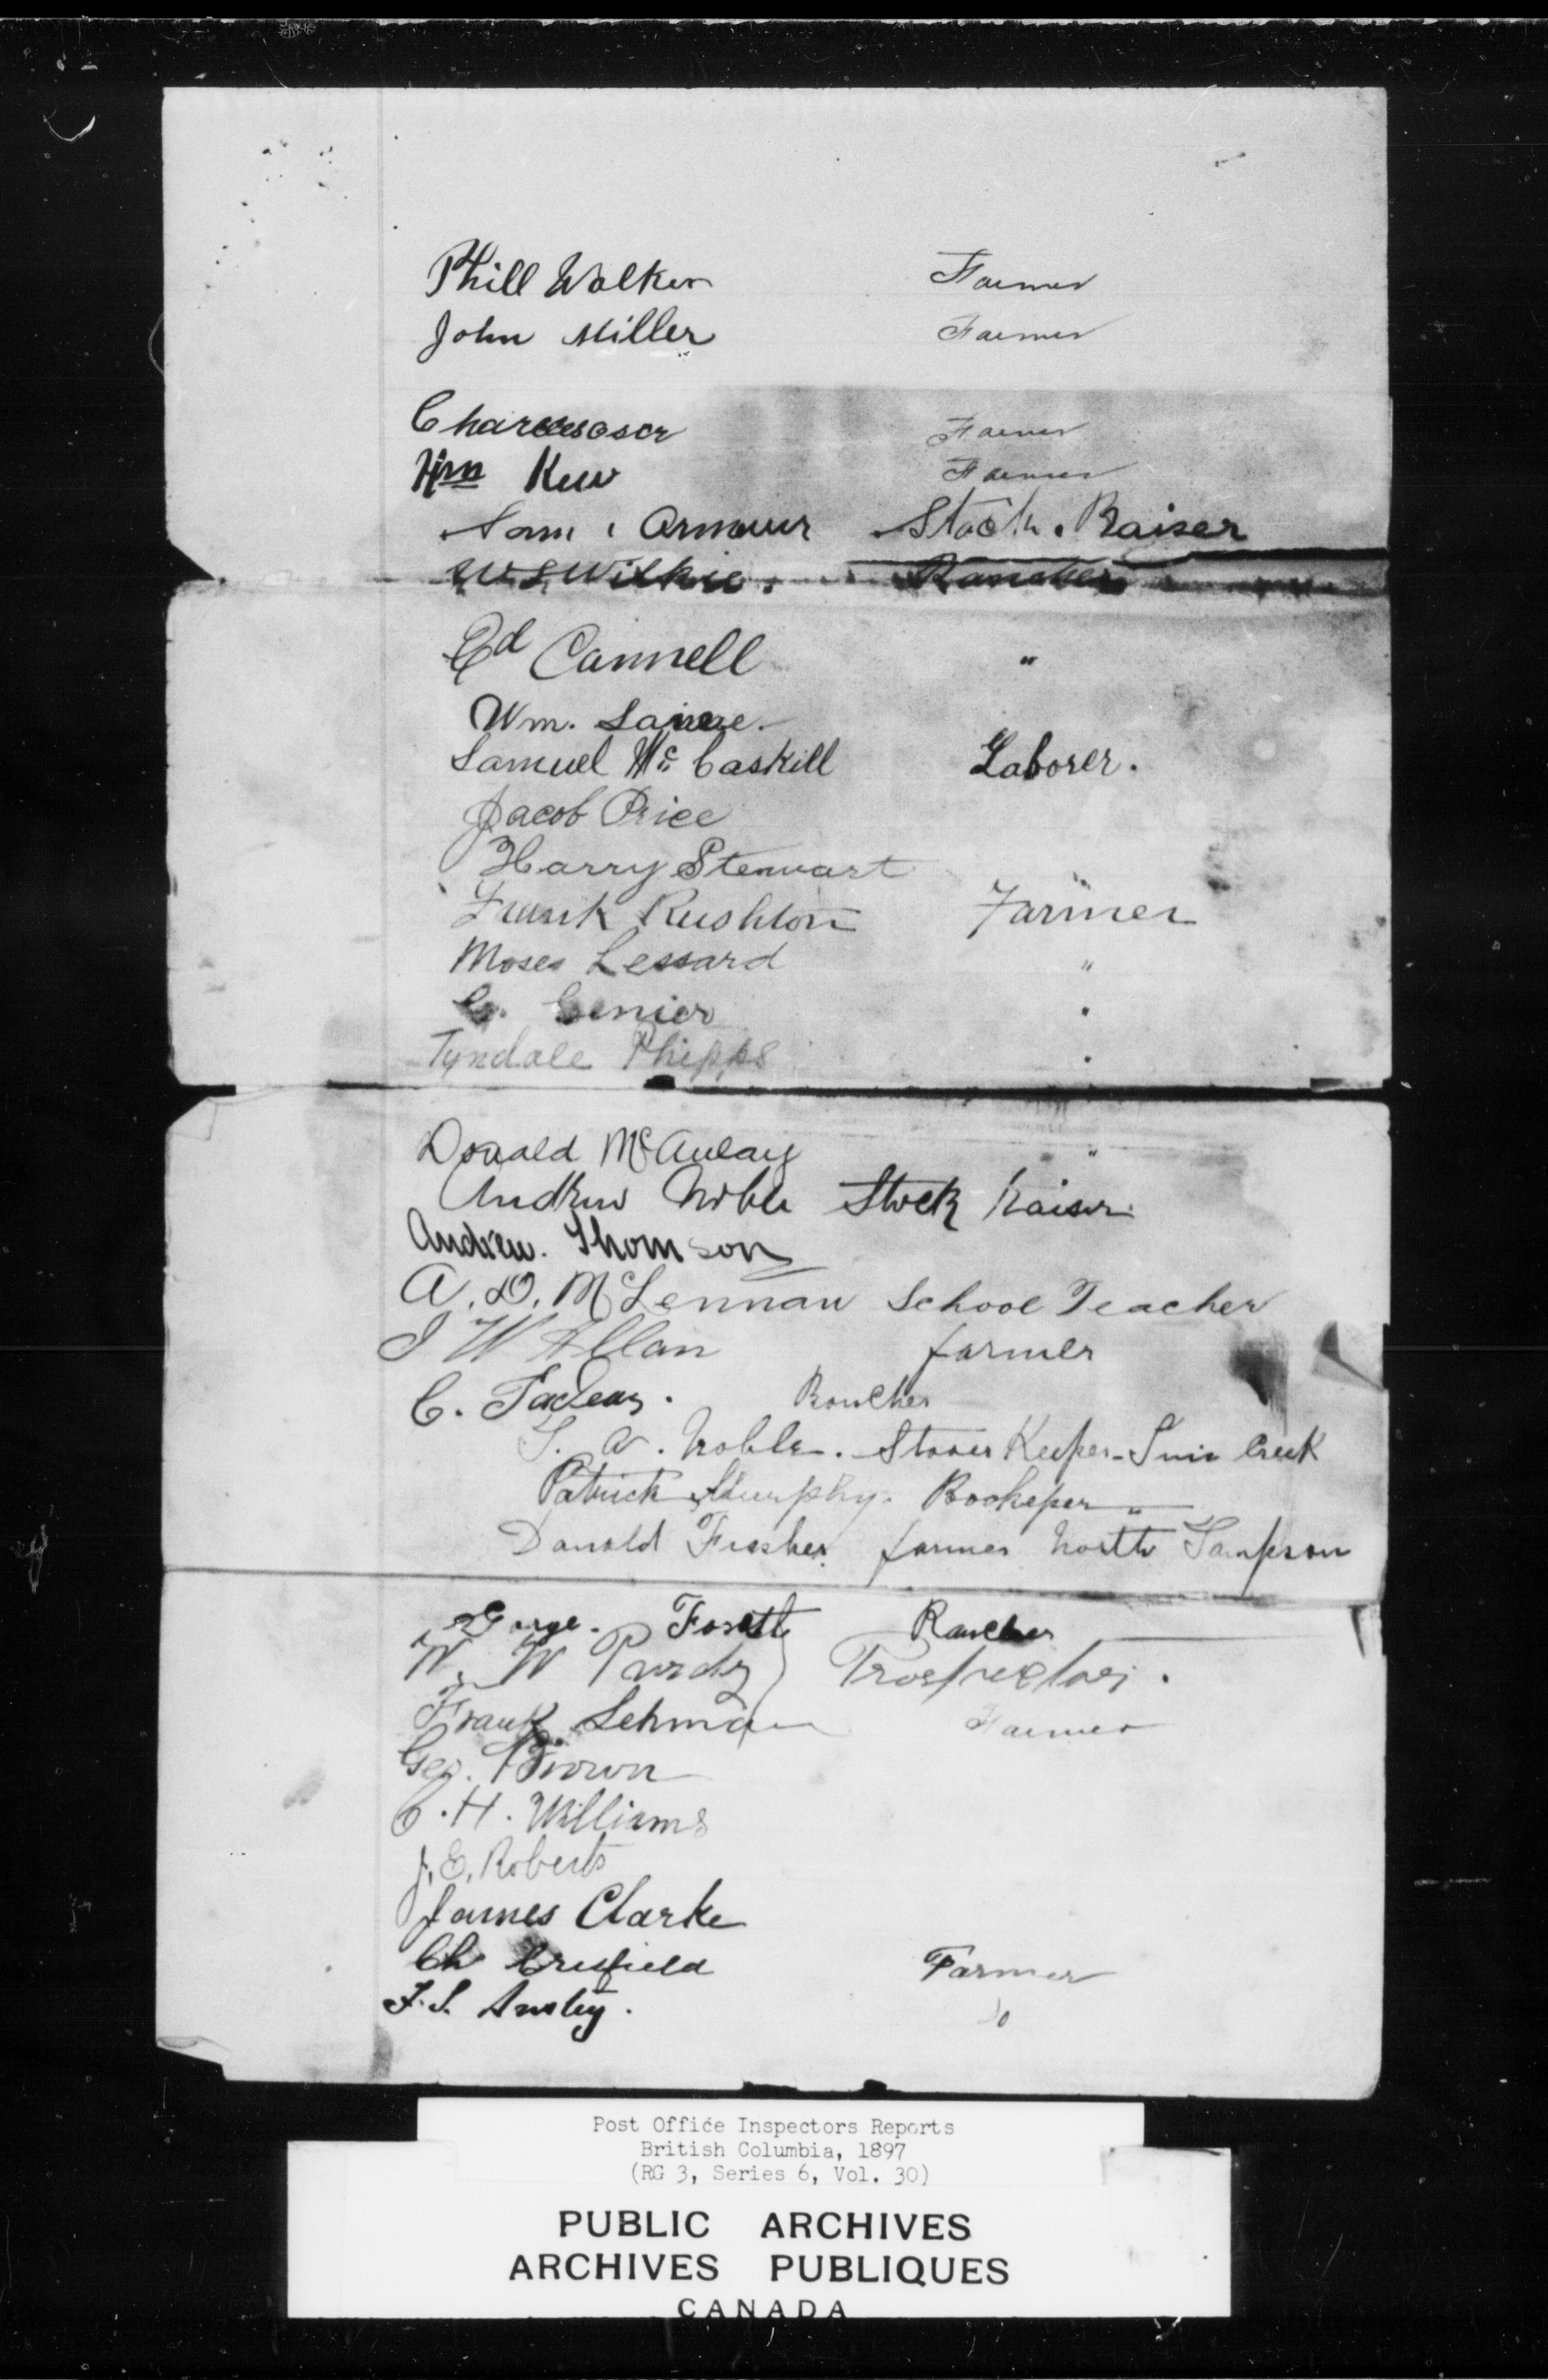 Phill Walker Farmer
John Miller Farmer
Farmer
Kew Farmer
Sam. Armour Stock. Raiser
W S Wilkie. Rancher
Ed Cannell "
Wm.
Samuel Mc Caskill Laborer.
Jacob Price
Harry Stewart "
Frank Rushton Farmer
Moses Lessard "
G. Genier "
Tyndale Phipps "
Donald McAulay "
Andrew Noble Stock Raiser
Andrew. Thomson
A. D. McLennan School Teacher
J W Allan farmer
C.
T. A. Noble. Keeper - Creek
Patrick Murphy. Bookeper "
Donald farmer North
George. Rancher
W. W Purdy
Frank Lehman Farmer
Geo. Brown
C. H. Williams
J. E. Roberts
James Clarke
Ch Farmer
F. S. Ansley. Do
Post Office Inspectors Reports
British Columbia, 1897
(RG 3, Series 6, Vol. 30)
PUBLIC ARCHIVES
ARCHIVES PUBLIQUES
CANADA